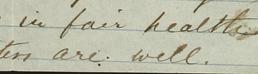 in fair health
are. well.